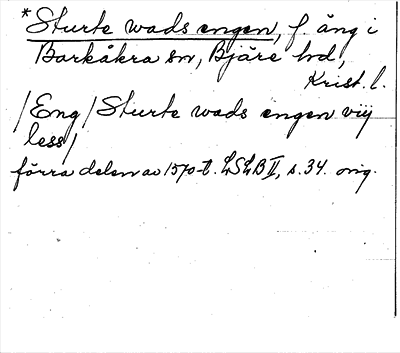 *Sturte wads engen, f. äng i
Barkåkra sn, Bjäre hd,
Krist. l.
/Eng/ Sturte wads engen viij
less/
förra delen av 1570-t. LSLB II, s. 34. orig.